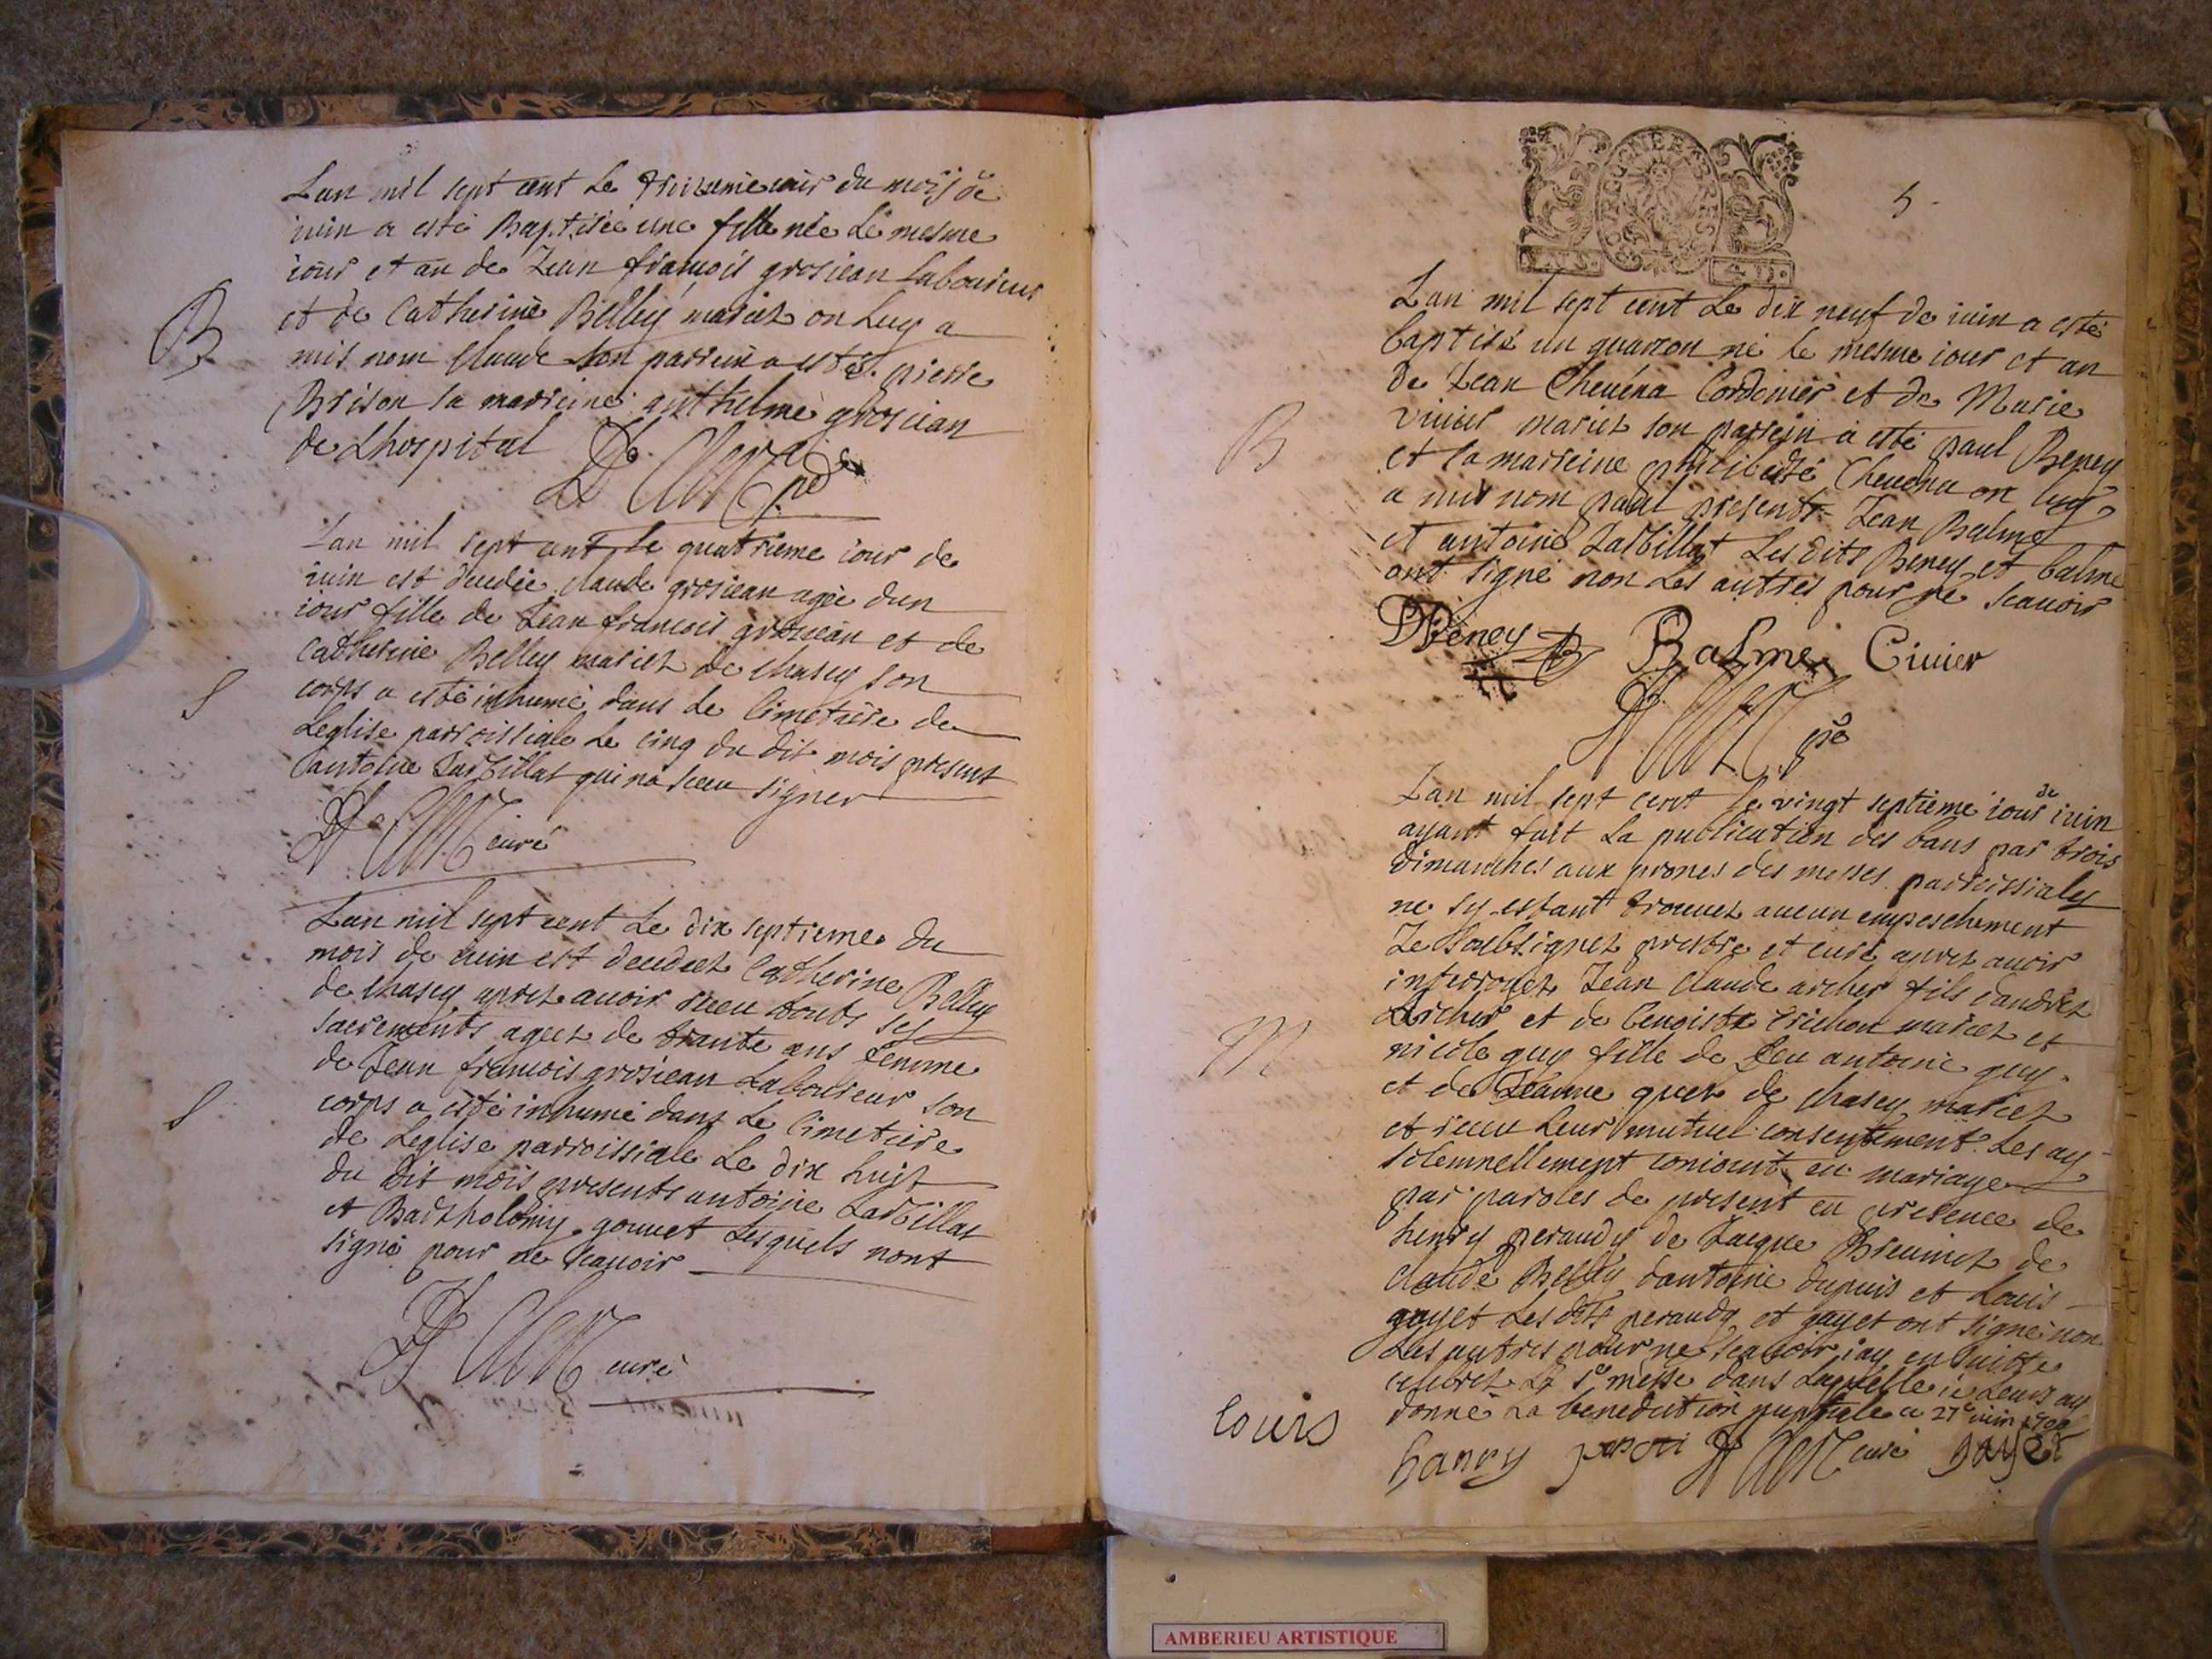 Lan mil sept cent Le du mois de
iuin a esté Baptisée une fille née Le mesme
iour et an de Jean francois grosiean Laboureur
et de Catherine Belley mariez on Luy a
B
mis nom Claude son parrein a esté pierre
Brison sa marreine anthelme grosiean
de Lhospital
Lan mil sept cent Le quatrieme iour de
iuin est decedée claude grosiean agée dun
iour fille de Jean francois grosiean et de
Catherine Belley mariez de chasey son
S
corps a esté inhumé dans Le Cimetiere de
Leglise parroissiale Le cinq du dit mois present
antoine Tarbillat qui na sceu signer
curé
Lan mil sept cent Le dix septieme du
mois de iuin est decedeez Catherine Belley
de chasey aprez auoir receu touts ses
sacrements ageez de trante ans femme
de Jean francois grosiean Laboureur son
S
corps a esté inhumé dans Le Cimetiere
de Leglise parroissiale Le dix huit
du dit mois presents antoine Tarbillat
et Bartholomy gonnet Lesquels nont
signé pour ne scauoir
curé
5
Lan mil sept cent Le dix neuf de iuin a esté
baptisé un guarzon né le mesme iour et an
de Jean Cheuena Cordonier et de Marie
viuier mariez son parrein a esté paul Beney
B
et sa marreine Cheuena on luy
a mis nom paul presents Jean Balme
et antoine Tarbillat Lesdits Beney et balme
ont signé non Les autres pour ne scauoir
Beney Balme Ciuier
Lan mil sept cent le vingt septieme iour de iuin
ayant fait La publication des bans par trois
dimanches aux prones des messes parroissiales
ne sy estant trouuez aucun empeschement
Je soubsignez prestre et curé aprez auoir
interrogez Jean Claude archer fils dandrez
Archer et de benoiste mariez et
M
nicole guy fille de feu antoine guy
et de Jeanne de chasey mariez
et receu Leur mutuel consentement Les ay
solemnellement conioint en mariage
par paroles de present en presence de
henry peraudy de Jacque de
claude Belley dantoine dupuis et Louis
gayet Lesdits peraudy et gayet ont signé non
Les autres pour ne scauoir iay en suitte
celebrez La Ste messe dans Laquelle ie Leurs ay
donné La benediction nuptiale ce 27e iuin 1700
Louis
hanry curé gayet
AMBERIEU ARTISTIQUE